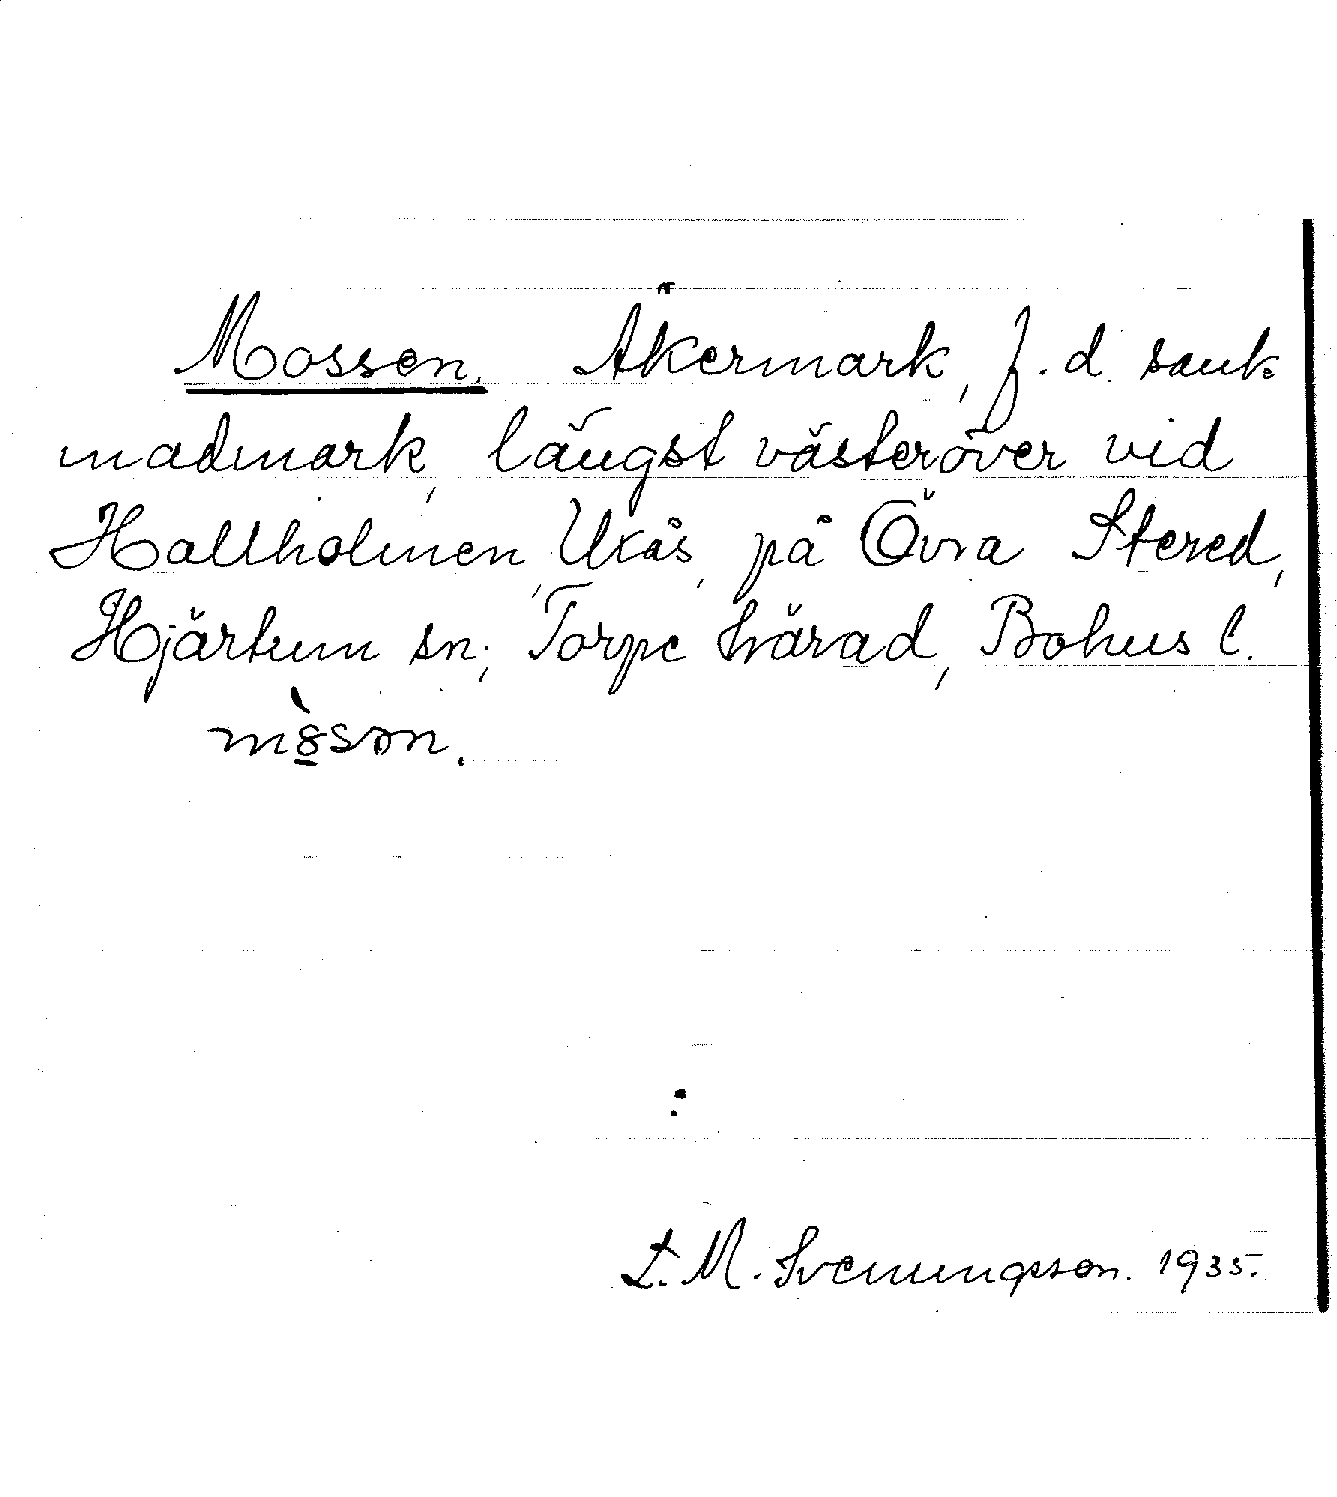 Mossen. Åkermark, f.d. sank
madmark, längst västeröver vid
Hallholmen, Ukås, på Övra Stered,
Hjärtum sn; Torpe härad, Bohus l.
mòson.
L. M. Svenungsson. 1935.